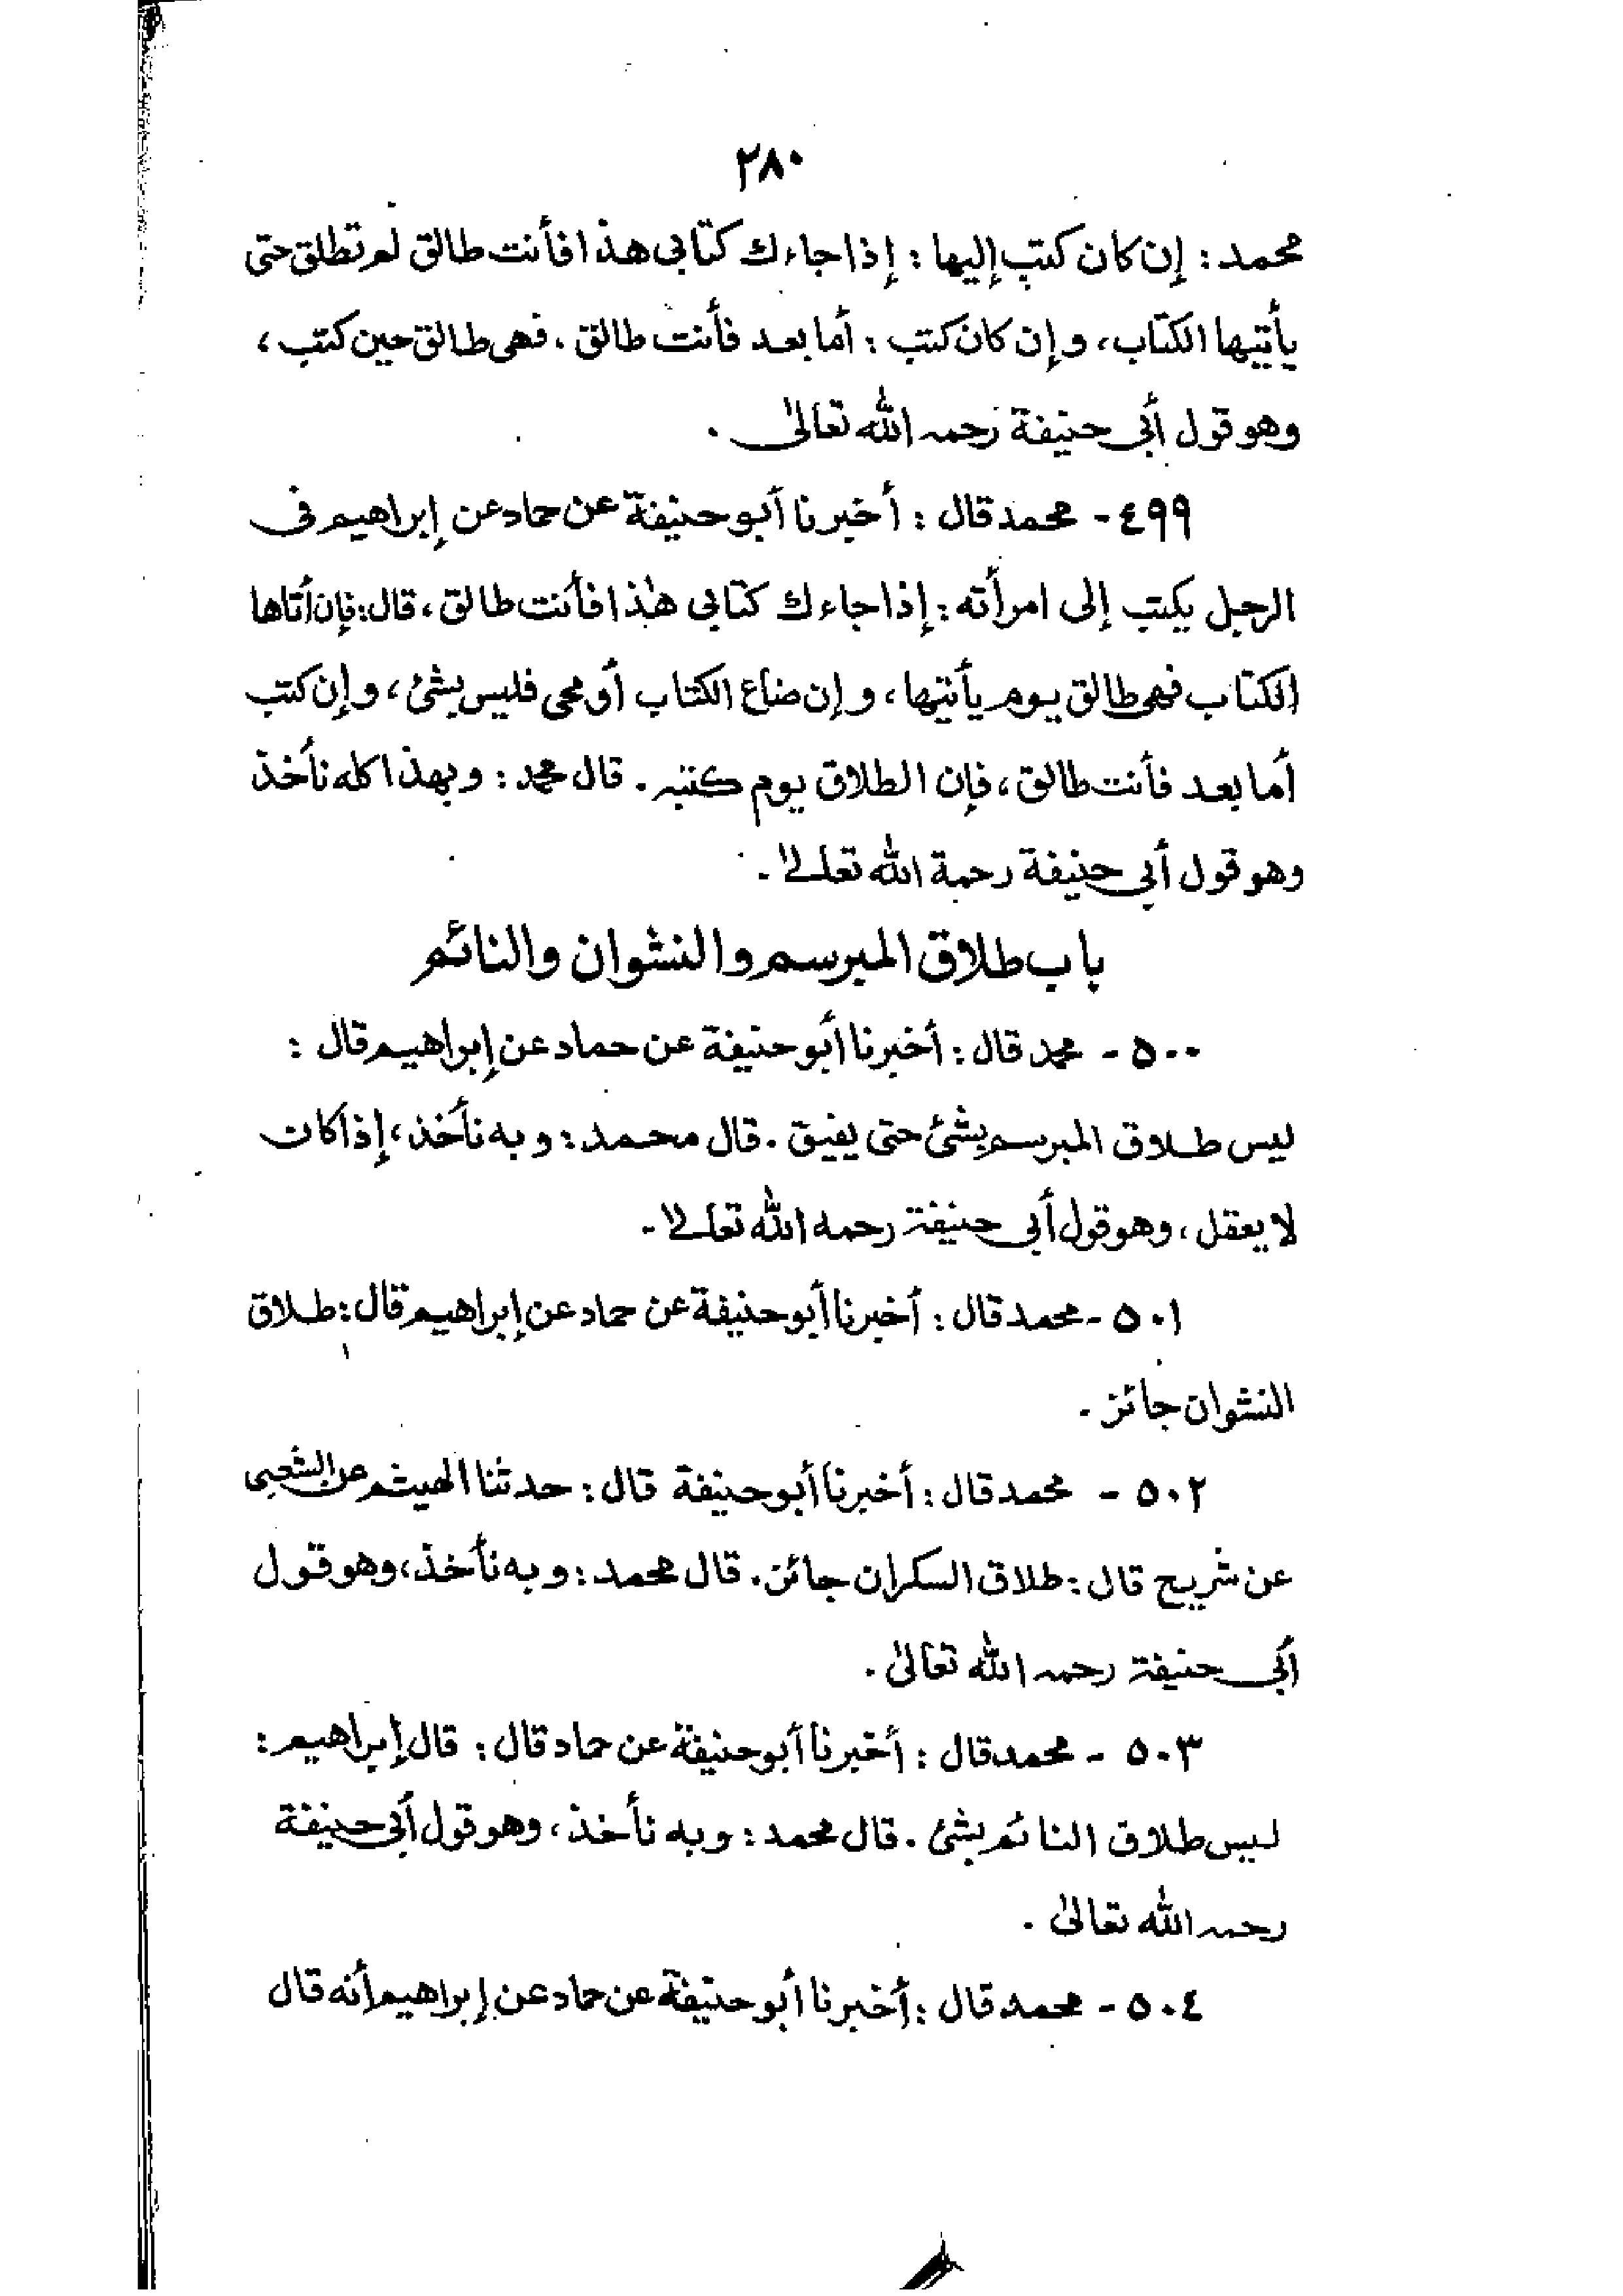 ٢٨٠
محمد : إن كان كتب إليها : إذا جاءك كتابى هذا فأنت طالق لم تطلق حتى
يأتيها الكتاب، وإن كان كتب : أما بعد فأنت طالق . فهى طالق حين كتب ،
وهو قول أبى حنيفة رحمه الله تعالى .
٤٩٩ - محمد قال : أخبرنا أبو حنيفة عن حماد عن إبراهيم فى
الرجل يكتب إلى امرأته : إذا جاءك كتابى هذا فأنت طالق ، قال : فإن أتاها
الكتاب فهى طالق يوم يأتيها ، وإن ضاع الكتاب أو محى فليس بشئ ، وإن كتب
أما بعد فأنت طالق ، فإن الطلاق يوم كتبه . قال محمد : وبهذا كله نأخذ
وهو قول أبى حنيفة رحمة الله تعالى .
باب طلاق المبرسم والنشوان والنائم
٥٠٠ - محمد قال : أخبرنا أبو حنيفة عن حماد عن إبراهيم قال :
ليس طلاق المبرسم بشئ حتى يفيق . قال محمد : وبه نأخذ ، إذا كان
لا يعقل ، وهو قول أبى حنيفة رحمه الله تعالى -
٥٠١ - محمد قال : أخبرنا أبو حنيفة عن حماد عن إبراهيم قال : طلاق
النشوان جائز -
٥٠٢ - محمد قال : أخبرنا أبو حنيفة قال : حدثنا الهيثم عن الشعبى
عن شريح قال : طلاق السكران جائز . قال محمد : وبه نأخذ ، وهو قول
أبى حنيفة رحمه الله تعالى .
٥٠٣ - محمد قال : أخبرنا أبو حنيفة عن حماد قال : قال إبراهيم :
ليس طلاق النائم بشئ . قال محمد : وبه نأخذ ، وهو قول أبى حنيفة
رحمه الله تعالى .
٥٠٤ - محمد قال : أخبرنا أبو حنيفة عن حماد عن إبراهيم أنه قال